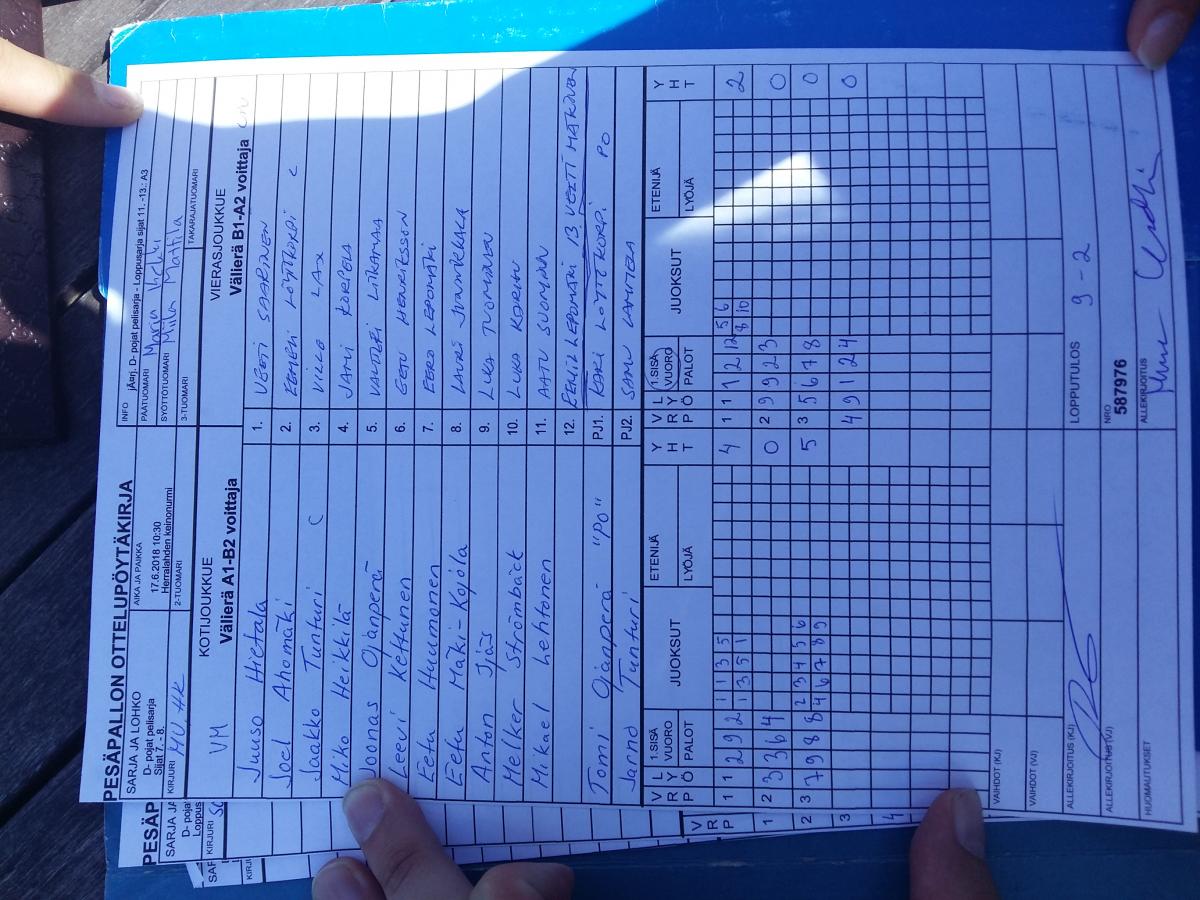 PESÄPALLON OTTELUPÖYTÄKIRJA
SARJA JA LOHKO
D- pojat pelisarja
Sijat 7. - 8.
AIKA JA PAIKKA
17.6.2018 10:30
Herralahden keinonurmi
INFO jÄarj. D- pojat pelisarja - Loppusarja sijat 11.-13.: A3
PÄÄTUOMARI
SYÖTTÖTUOMARI Miila Mattila
KIRJURI MV, HK
2-TUOMARI
3-TUOMARI
TAKARAJATUOMARI
KOTIJOUKKUE
VM Välierä A1-B2 voittaja
VIERASJOUKKUE
Välierä B1-A2 voittaja
Juuso Hietala 1. VEETI SAARINEN
Joel Ahomäki 2. EEMELI LÖTJÖKORPI C
Jaakko Tunturi C 3. VILLE LAX
Miko Heikkilä 4. JAMI KORPELA
Joonas Ojanperä 5. VALTTERI LIIKAMAA
Leevi Kettunen 6. EETU HENRIKSSON
Eetu Huumonen 7. EERO LEPOMÄKI
Eetu Mäki-Kojola 8. LAURI
Anton Ijäs 9. LUKA TUOMINEN
Melker Strömbäck 10. LUKA KORHU
Mikael Lehtonen 11. AATU SUOMINEN
12. EEMIL LEPOMÄKI 13 VEETI MÄKINEN
Tomi Ojanperä "PO" PJ1. KARI LÖYTTÖKORPI PO
Jano Tunturi PJ2. SAMU LAMMELA
VRP LYÖ 1.SISÄ VUORO PALOT JUOKSUT ETENIJÄ LYÖJÄ YHT
VRP LYÖ 1.SISÄ VUORO PALOT JUOKSUT ETENIJÄ LYÖJÄ YHT
1 1 2 9 2 1 1 3 5 4 1 1 1 2 12 5 6 2
1 3 5 1 8 10
1 2 3 3 6 4 0 2 9 9 2 3 0
2 3 7 9 8 8 2 3 4 5 6 5 3 5 6 7 8 0
4 6 7 8 9
3 4 9 1 2 4 0
4
VAIHDOT (KJ)
VAIHDOT (VJ)
ALLEKIRJOITUS (KJ)
LOPPUTULOS 9 - 2
ALLEKIRJOITUS (VJ)
NRO
587976
HUOMAUTUKSET
ALLEKIRJOITUS
PESÄP
SARJA JA
D- pojat
Loppus
KIRJURI
SAR
KIRJ
VRP